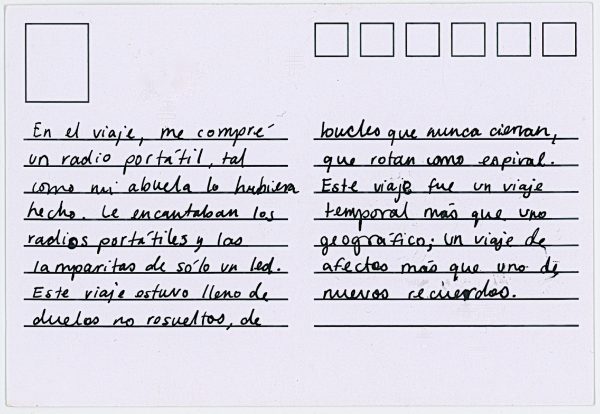 En el viaje, me compré
un radio portátil, tal
como mi abuela lo hubiera
hecho. Le encantaban los
radios portátiles y las
lamparitas de sólo un led.
Este viaje estuvo lleno de
duelos no resueltos, de
bucles que nunca cierran,
que rotan como espiral.
Este viaje fue un viaje
temporal más que uno
geográfico; un viaje de
afectos más que uno de
nuevos recuerdos.